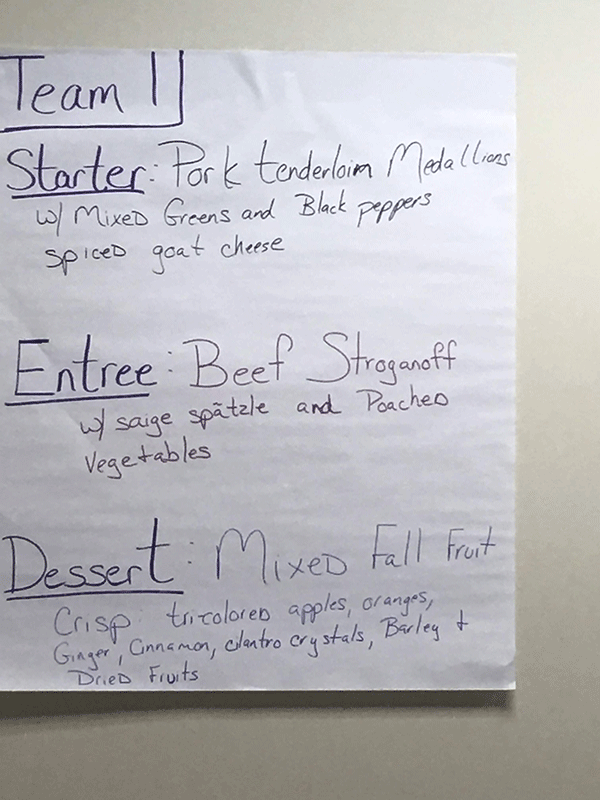 Team 1
Starter: Pork tenderloim Medallions
w/ Mixed Greens and Black peppers
spiced goat cheese
Entree: Beef Stroganoff
w/ saige spätzle and Poached
vegetables
Dessert: Mixed Fall Fruit
Crisp tri-colored apples, oranges,
Ginger, Cinnamon, cilantro crystals, Barley +
Dried Fruits